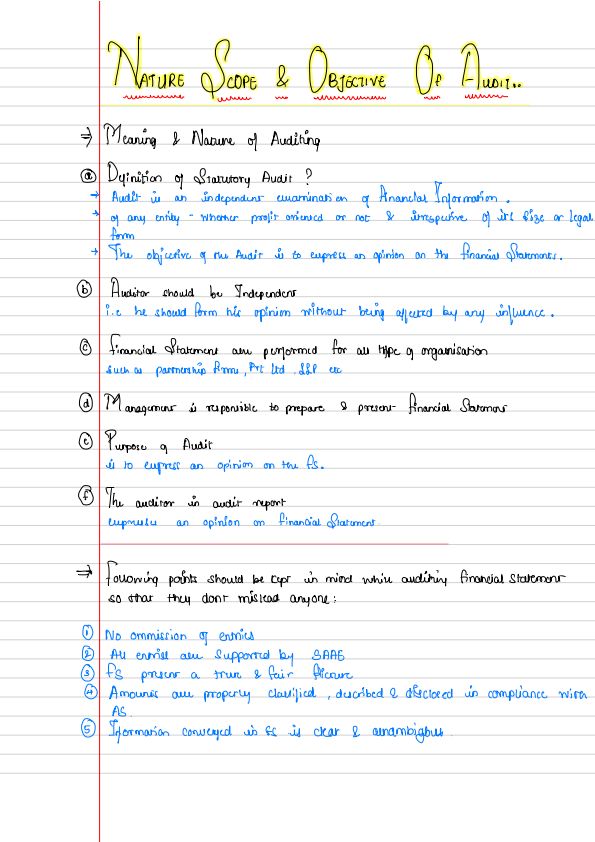 NATURE SCOPE & OBJECTIVE OF AUDIT..
⇒ Meaning & Nature of Auditing
ⓐ Definition of Statutory Audit ?
→ Audit is an independent examination of financial Information .
→ of any entity - whether profit oriented or not & irrespective of its size or legal
form
→ The objective of the Audit is to express an opinion on the financial Statements.
ⓑ Auditor should be Independent
i.e he should form his opinion without being affected by any influence .
ⓒ Financial Statement are performed for all type of organisation
such as partnership firms, Pvt Ltd , LLP etc
ⓓ Management is responsible to prepare & present financial Statement
ⓔ Purpose of Audit
is to express an opinion on the FS.
ⓕ The auditor in audit report
expresses an opinion on financial Statement
⇒ Following points should be kept in mind while auditing financial statement
so that they dont mislead anyone:
① No ommission of entries
② All entries are supported by SAAE
③ FS present a true & fair picture
④ Amounts are properly classified , described & disclosed in compliance with
AS.
⑤ Information conveyed in FS is clear & unambigous.